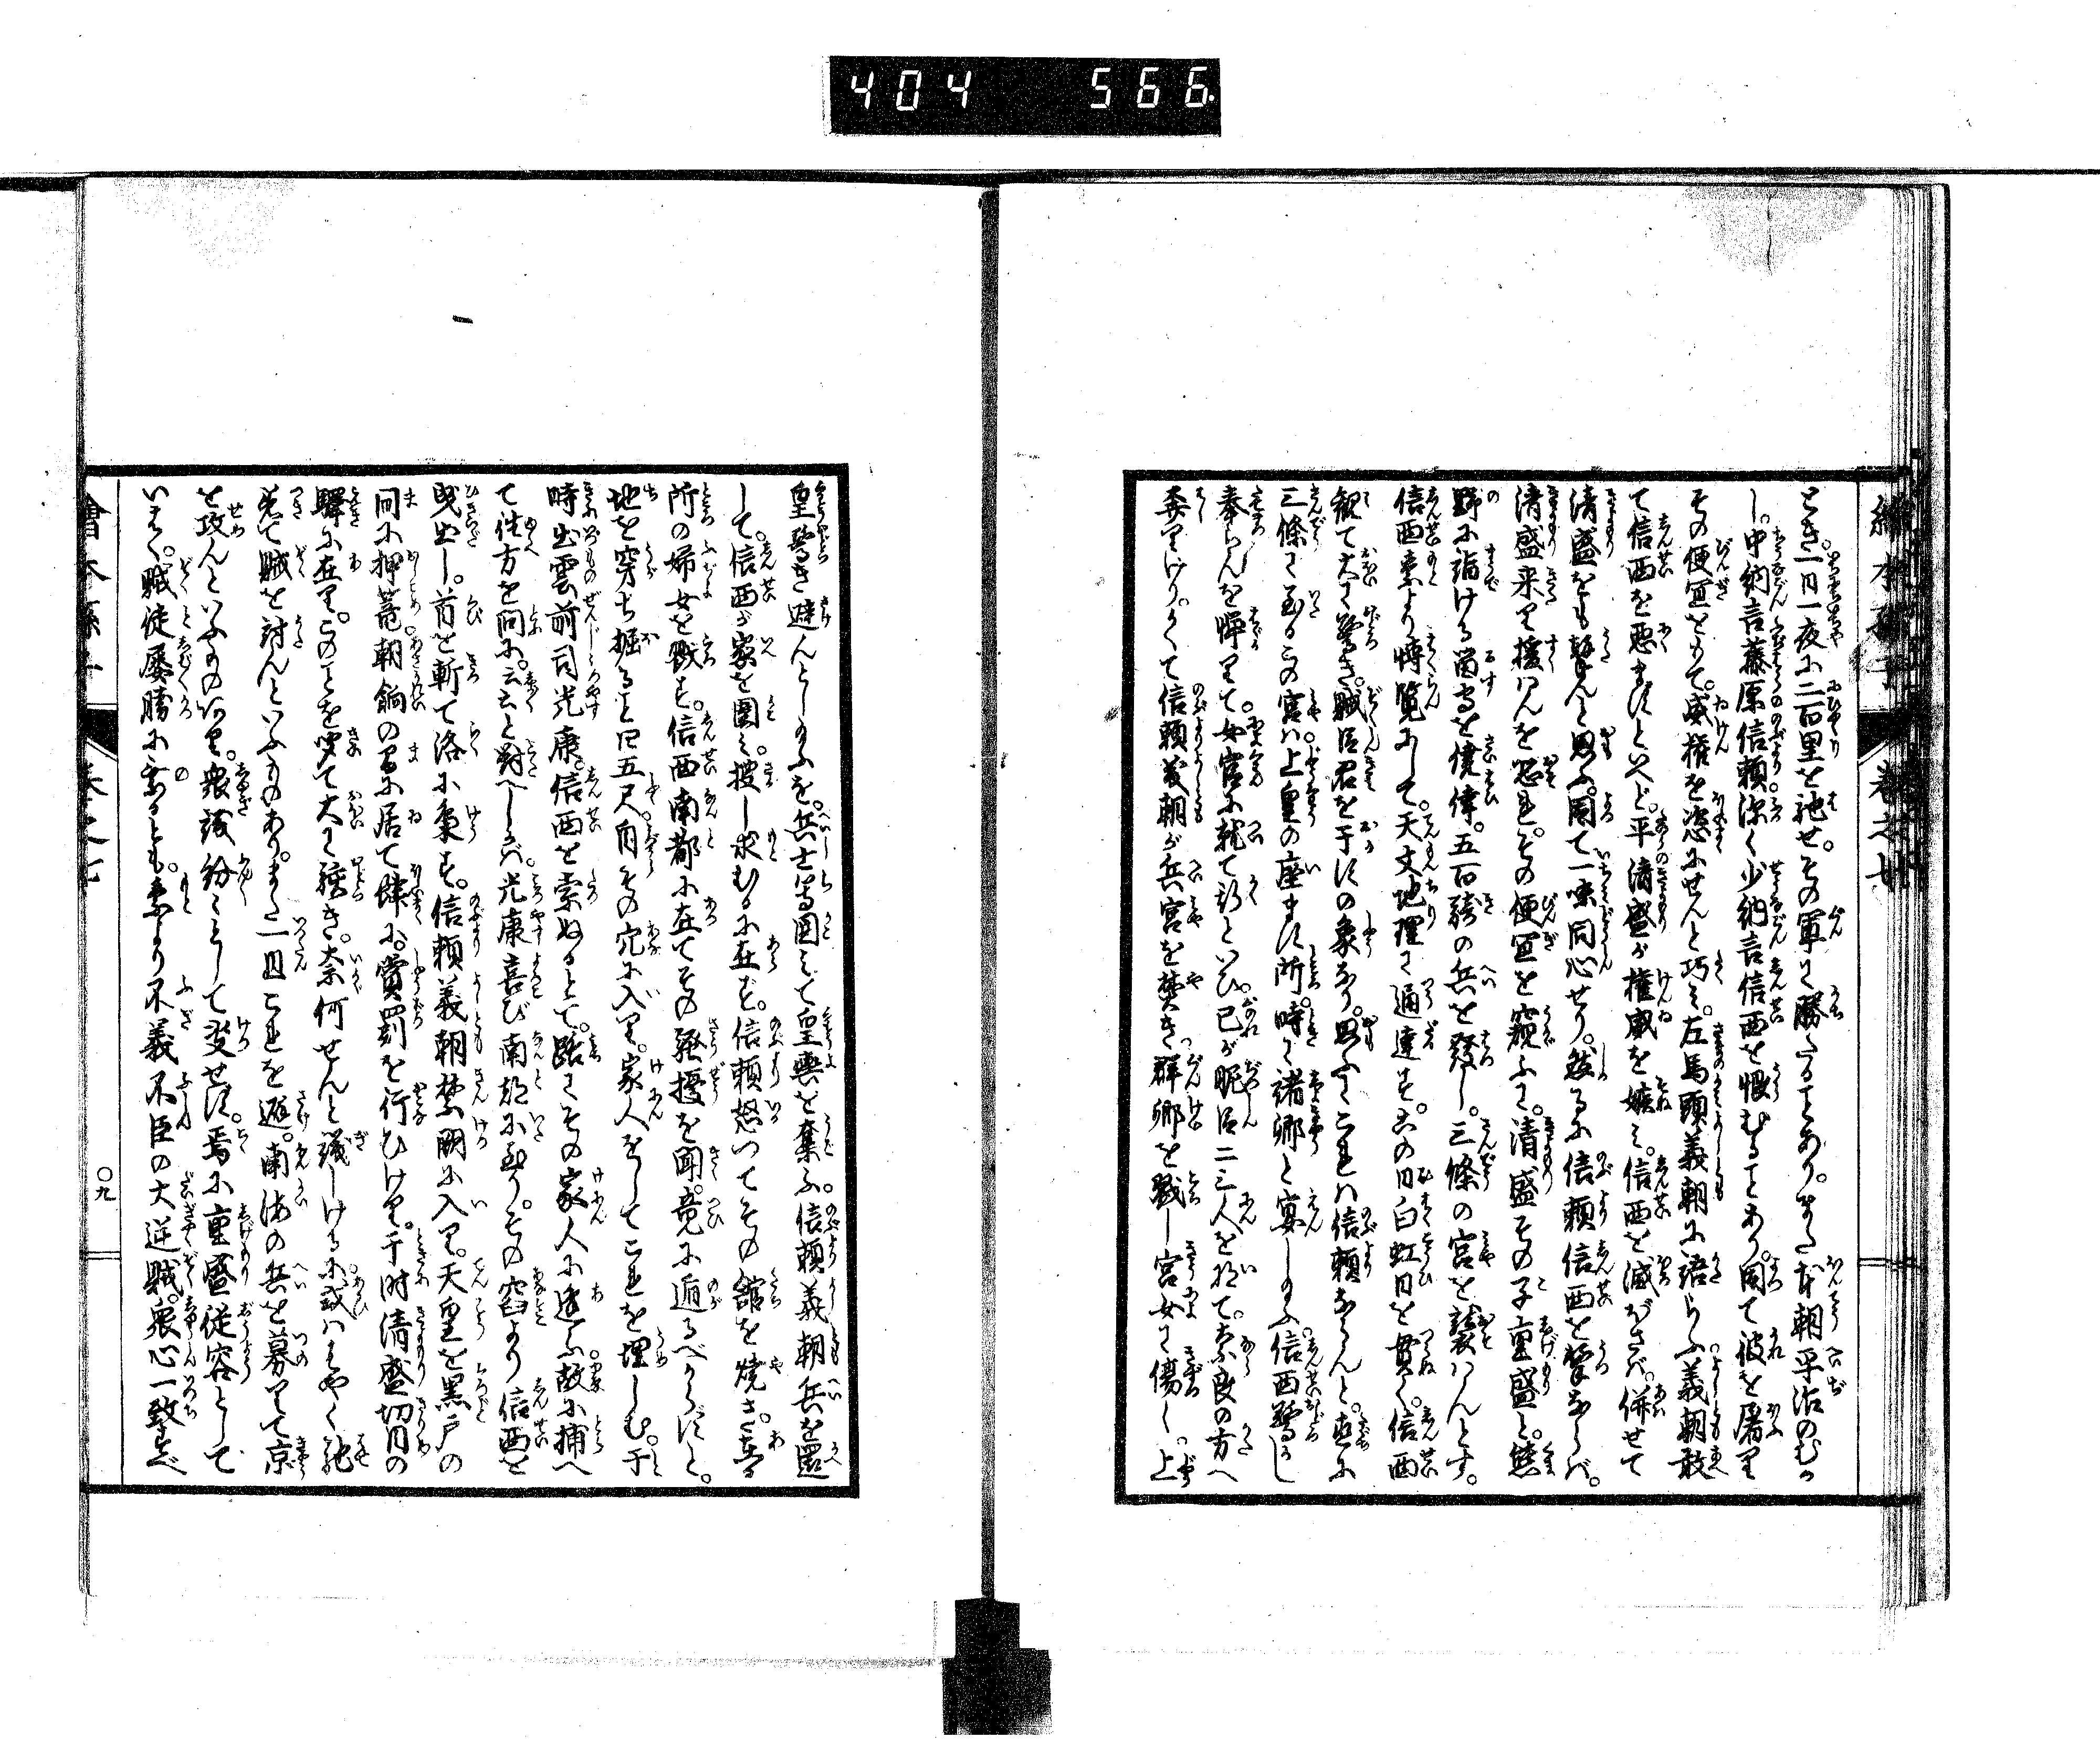 404 566.
とき。一日一夜に二百里を馳せ。その軍に勝たることあり。また本朝平治のむか
し。中納言藤原信頼。深く少納言信西を恨むることあり。因て彼を屠り
その便宜をもて。威権を恣にせんと巧み。左馬頭義朝に語らふ。義朝敢
て信西を悪まずといへど。平清盛が権威を嫉み。信西を滅ぼさば。併せて
清盛をも撃んと思ふ。因て一味同心せり。然るに信頼信西を撃ならば。
清盛来り援はんを恐れ。その便宜を窺ふに。清盛その子重盛と。熊
野に詣ける留守を僥倖。五百騎の兵を發し。三條の宮を襲はんとす。
信西素より博覧にして。天文地理に通達す。この日白虹日を貫く。信西
観て大に驚き。賊臣君を干すの象なり。思ふにこれは信頼ならんと。直に
三條に至るこの宮は上皇の座ます所。時に諸卿と宴したまふ信西驚かし
奉らんを憚りて。女官に就て斯といひ。己が眤臣二三人を将て。奈良の方へ
奔りけり。かくて信頼義朝が兵宮を焚き。群卿を戮し宮女を傷く。上
皇驚き避んとしたまふを。兵士等囲みて皇輿を奪ふ。信頼義朝兵を置
して。信西が家を圍み。捜し求むるに在ず。信頼怒つてその舘を焼き。在る
所の婦女を戮す。信西南都に在てその騒擾を聞。竟に遁るべからずと。
地を穿ち掘ること四五尺自その穴に入り。家人をしてこれを埋しむ。于
時出雲前司光康。信西を索ぬるとて。路にその家人に逢ふ敵に捕へ
て往方を問に。云云と對へしかば。光康喜び南都に至り。その窖より信西を
曳出し。首を斬て洛に梟す。信頼義朝禁闕に入り。天皇を黒戸の
間に押篭朝餉の間に居て肆に。賞罰を行ひけり。于時清盛切目の
驛に在り。このことを聞て大に駭き。奈何せんと議しけるに或ははやく馳
着て賊を討んといふものあり。また一旦これを避。南海の兵を募りて京
を攻んといふもの有り。衆議紛々として決せず。焉に重盛従容として
いはく。賊徒屡勝に乗るとも。素より不義不臣の大逆賊。衆心一致すべ
繪本孫子 巻之廿
〇九